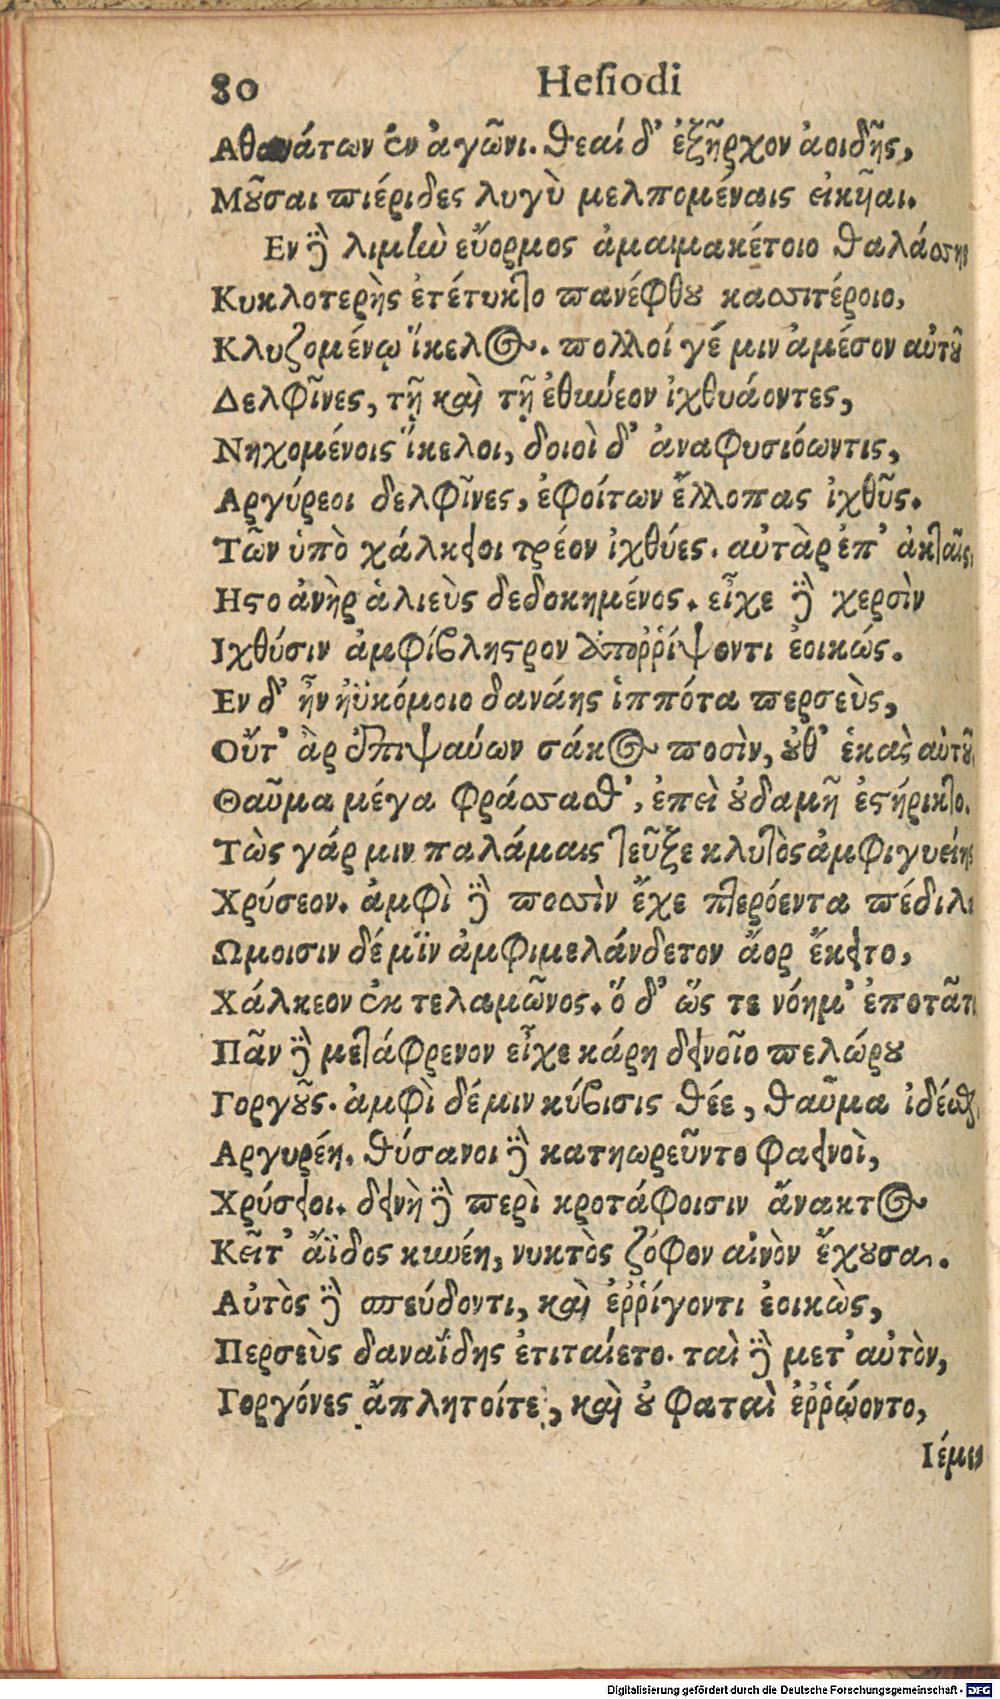 80 Hesiodi
Αθανάτων ἐν ἀγῶνι. θεαί δ' ἐξῆρχον ἀοιδῆς,
Μοῦσαι πιέριδες λυγὺ μελπομέναις εἰκῆαι.
Εν δὲ λιμὴν εὔορμος ἀμαιμακέτοιο θαλάσσης
Κυκλοτερὴς ἐτέτυκτο πανέφθου κασσιτέροιο,
Κλυζομένῳ ἴκελος. πολλοί γέ μιν ἀμέσον αὐτοῦ
Δελφῖνες, τῇ καὶ τῇ ἐθύνεον ἰχθυάοντες,
Νηχομένοις ἴκελοι, δοιοὶ δ' ἀναφυσιόωντις,
Αργύρεοι δελφῖνες, ἐφοίτων ἔλλοπας ἰχθῦς.
Τῶν ὑπὸ χάλκειοι τρέον ἰχθύες. αὐτὰρ ἐπ' ἀκταῖς
Ηστο ἀνὴρ ἁλιεὺς δεδοκημένος. εἶχε δὲ χερσὶν
Ιχθύσιν ἀμφίβληστρον ἀποῤῥίψοντι ἐοικώς.
Εν δ' ἦν ἠϋκόμοιο δανάης ἱππότα περσεὺς,
Οὔτ' ἂρ ἐπιψαύων σάκος ποσὶν, οὐθ' ἑκὰς αὐτοῦ,
Θαῦμα μέγα φράσσασθ', ἐπεὶ οὐδαμῆ ἐστήρικτο.
Τὼς γάρ μιν παλάμαις τεῦξε κλυτὸς ἀμφιγυείης
Χρύσεον. ἀμφὶ δὲ ποσσὶν ἔχε πτερόεντα πέδιλα
Ωμοισιν δέ μὶν ἀμφιμελάνδετον ἄορ ἔκειτο,
Χάλκεον ἐκ τελαμῶνος. ὅ δ' ὥς τε νόημ' ἐποτᾶτο
Πᾶν δὲ μετάφρενον εἶχε κάρη δεινοῖο πελώρου
Γοργοῦς. ἀμφὶ δέ μιν κύβισις θέε, θαῦμα ἰδέσθαι,
Αργυρέη. θύσανοι δὲ κατηωρεῦντο φαεινοὶ,
Χρύσειοι. δεινὴ δὲ περὶ κροτάφοισιν ἄνακτος
Κεῖτ' ἄϊδος κυνέη, νυκτὸς ζόφον αἰνὸν ἔχουσα.
Αὐτὸς δὲ σπεύδοντι, καὶ ἐῤῥίγοντι ἐοικὼς,
Περσεὺς δαναΐδης ἐτιταίετο. ταὶ δὲ μετ' αὐτὸν,
Γοργόνες ἄπλητοίτε, καὶ οὐ φαταὶ ἐῤῥώοντο,
Ιέμεν
Digitalisierung gefördert durch die Deutsche Forschungsgemeinschaft - DFG